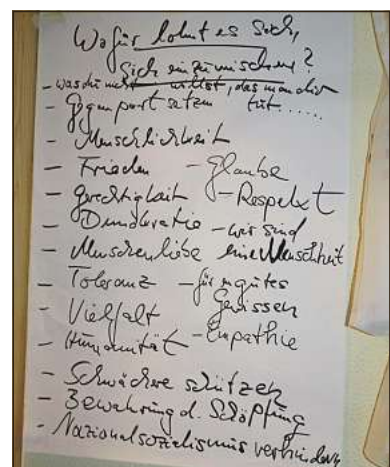 Wofür lohnt es sich,
sich einzumischen?
- was du nicht willst, das man dir tut.....
- Gegenpart setzen
- Menschlichkeit
- Frieden - Glaube
- Gerechtigkeit - Respekt
- Demokratie - wir sind
- Menschenliebe eine Menschheit
- Toleranz - für ein gutes
- Vielfalt Gewissen
- Humanität - Empathie
- Schwächere schützen
- Bewahrung d. Schöpfung
- Nationalsozialismus verhindern